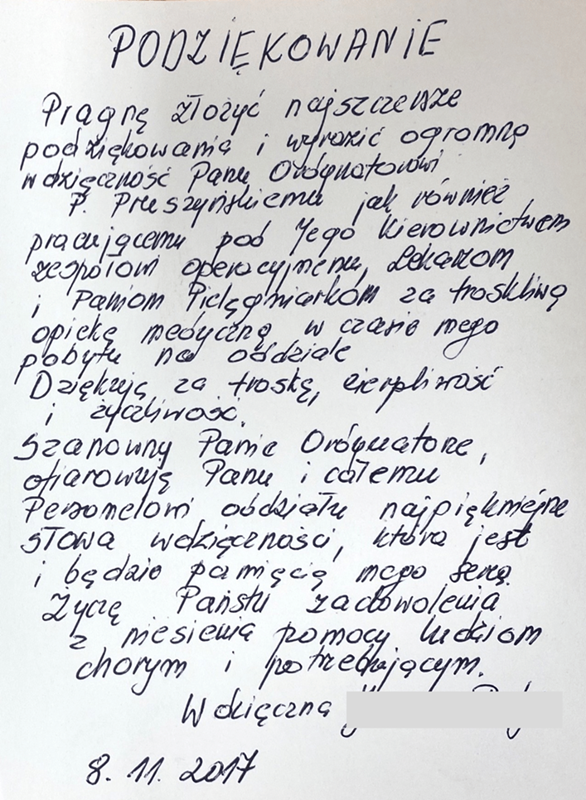 PODZIĘKOWANIE
Pragnę złożyć najszczersze
podziękowania i wyrazić ogromną
wdzięczność Panu Ordynatorowi
P. Pruszyńskiemu jak również
pracującemu pod Jego kierownictwem
zespołowi operacyjnemu, Lekarzom
i Paniom Pielęgniarkom za troskliwą
opiekę medyczną w czasie mego
pobytu na oddziale
Dziękuję za troskę, cierpliwość
i życzliwość.
Szanowny Panie Ordynatorze,
ofiarowuję Panu i całemu
Personelowi oddziału najpiękniejsze
słowa wdzięczności, która jest
i będzie pamięcią mego serca.
Życzę Państwu zadowolenia
z niesienia pomocy ludziom
chorym i potrzebującym.
Wdzięczna
8. 11. 2017